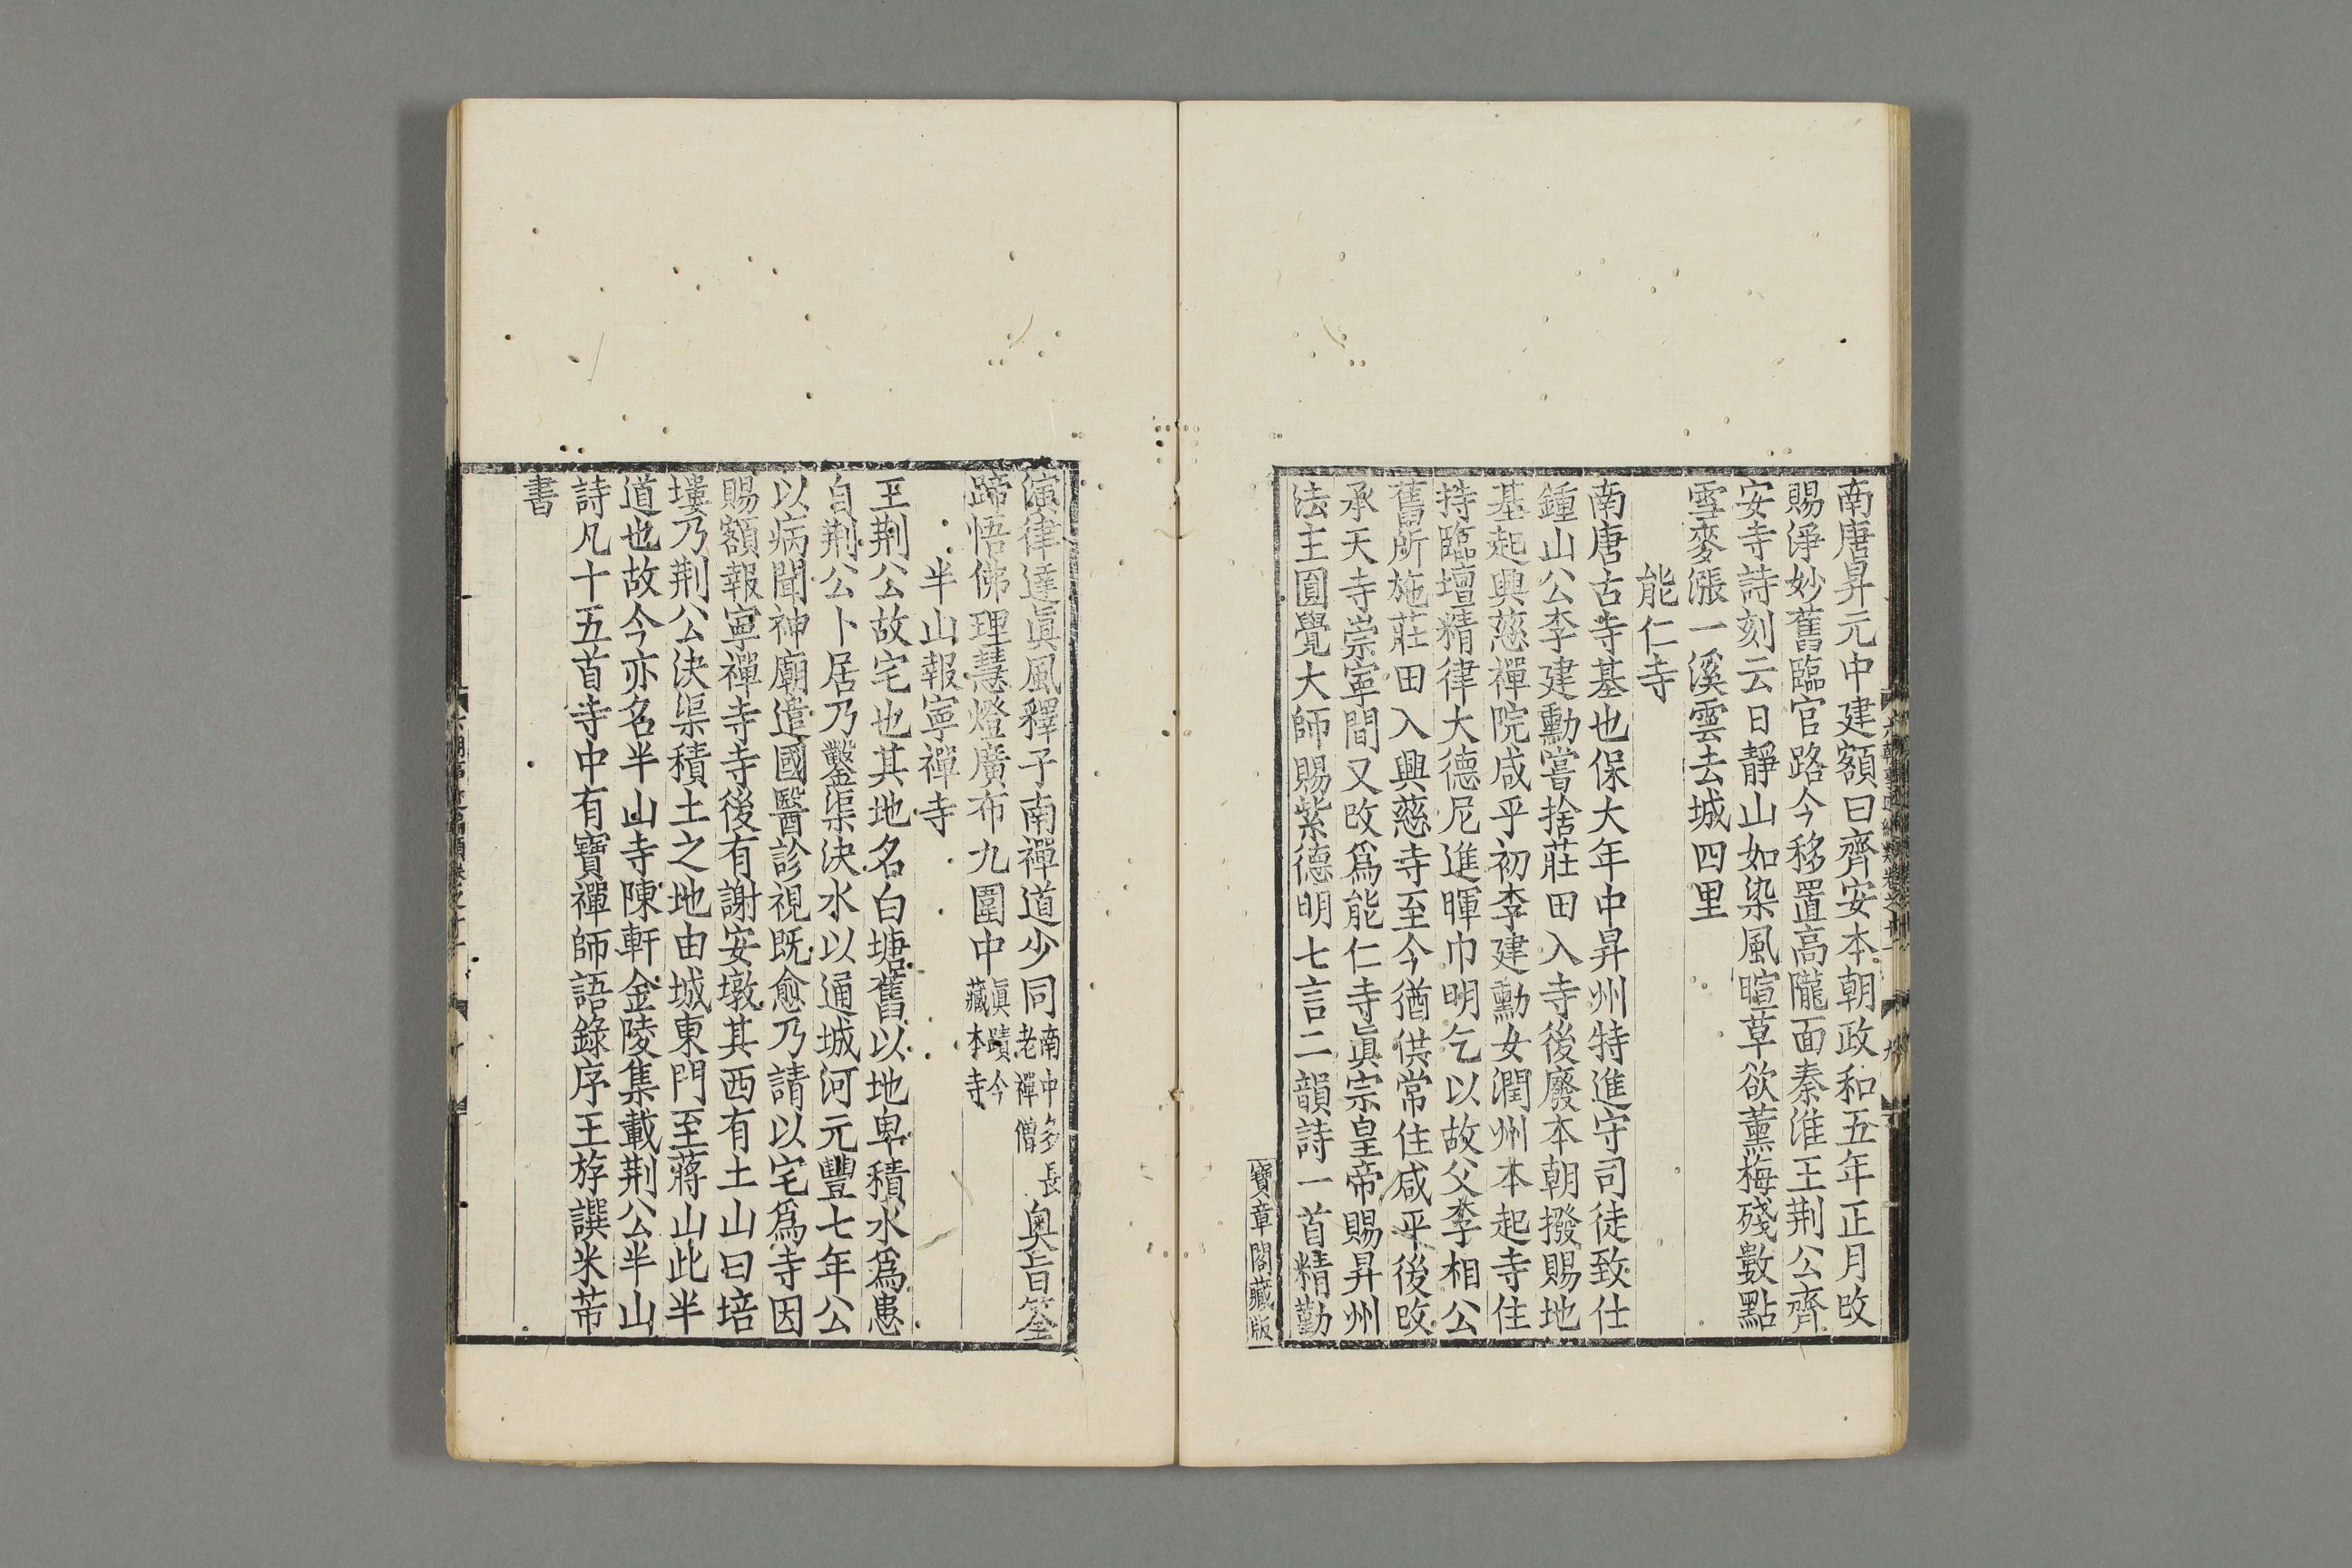 南唐昇元中建額曰齊安本朝政和五年正月改
賜淨妙舊臨官路今移置高隴面秦淮王荆公齊
安寺詩刻云日靜山如染風暄草欲薰梅殘數點
雪麥漲一溪雲去城四里
能仁寺
南唐古寺基也保大年中昇州特進守司徒致仕
鍾山公李建勳嘗捨莊田入寺後廢本朝撥賜地
基起興慈禪院咸乎初李建勳女潤州本起寺住
持臨壇精律大德尼進暉巾明乞以故父李相公
舊所施莊田入興慈寺至今猶供常住咸平後改
承天寺崇寧間又改爲能仁寺眞宗皇帝賜昇州
法主圓覺大師賜紫德明七言二韻詩一首精勤
寶章閣藏版
演律達眞風釋子南禪道少同南中多長老禪僧奥旨筌
蹄悟佛理慧燈廣布九圍中眞蹟今藏本寺
半山報寧禪寺
王荆公故宅也其地名白塘舊以地卑積水爲患
自荆公卜居乃鑿渠決水以通城河元豐七年公
以病聞神廟遣國醫診視既愈乃請以宅爲寺因
賜額報寧禪寺寺後有謝安墩其西有土山曰培
塿乃荆公決渠積土之地由城東門至蔣山此半
道也故今亦名半山寺陳軒金陵集載荆公半山
詩凡十五首寺中有寶禪師語錄序王荐譔米芾
書